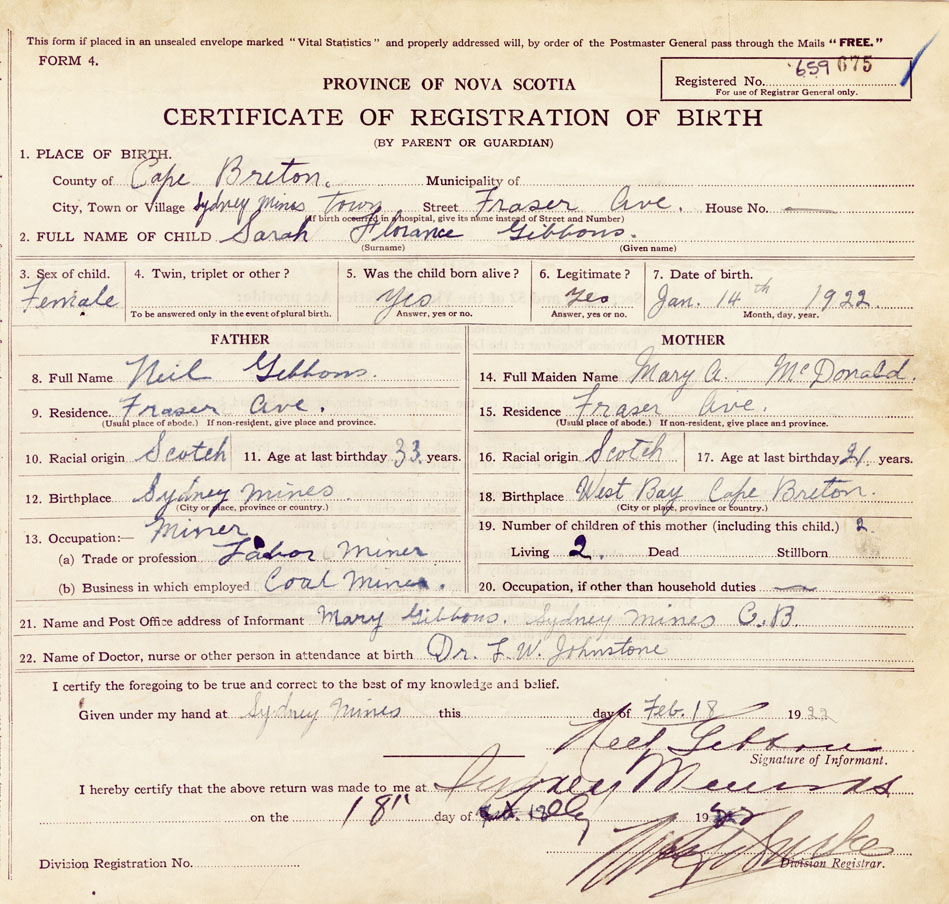 This form if placed in an unsealed envelope marked "Vital Statistics" and properly addressed will, by order of the Postmaster General pass through the Mails "FREE."
FORM 4.
PROVINCE OF NOVA SCOTIA
Registered No. 659 675
For use of Registrar General only.
CERTIFICATE OF REGISTRATION OF BIRTH
(BY PARENT OR GUARDIAN)
1. PLACE OF BIRTH.
County of Cape Breton. Municipality of
City, Town or Village Sydney Mines Town Street Fraser Ave. House No. —
(If birth occurred in a hospital, give its name instead of Street and Number)
2. FULL NAME OF CHILD Sarah Florance Gibbons.
(Surname) (Given name)
3. Sex of child. 4. Twin, triplet or other? 5. Was the child born alive? 6. Legitimate? 7. Date of birth.
Female Yes Yes Jan. 14th 1922.
To be answered only in the event of plural birth. Answer, yes or no. Answer, yes or no. Month, day, year.
FATHER MOTHER
8. Full Name Neil Gibbons. 14. Full Maiden Name Mary A. McDonald.
9. Residence. Fraser Ave. 15. Residence Fraser Ave.
(Usual place of abode.) If non-resident, give place and province. (Usual place of abode.) If non-resident, give place and province.
10. Racial origin Scotch 11. Age at last birthday 33 years. 16. Racial origin Scotch 17. Age at last birthday 21 years.
12. Birthplace Sydney Mines 18. Birthplace West Bay Cape Breton.
(City or place, province or country.) (City or place, province or country.)
13. Occupation:— Miner 19. Number of children of this mother (including this child.) 2
(a) Trade or profession Labor Miner Living 2. Dead Stillborn
(b) Business in which employed Coal Mines. 20. Occupation, if other than household duties —
21. Name and Post Office address of Informant Mary Gibbons. Sydney Mines C.B.
22. Name of Doctor, nurse or other person in attendance at birth Dr. L. W. Johnstone
I certify the foregoing to be true and correct to the best of my knowledge and belief.
Given under my hand at Sydney Mines this day of Feb. 18 1922
Neil Gibbons
Signature of Informant.
I hereby certify that the above return was made to me at Sydney Mines
on the 18" day of 1922
Division Registration No. Division Registrar.